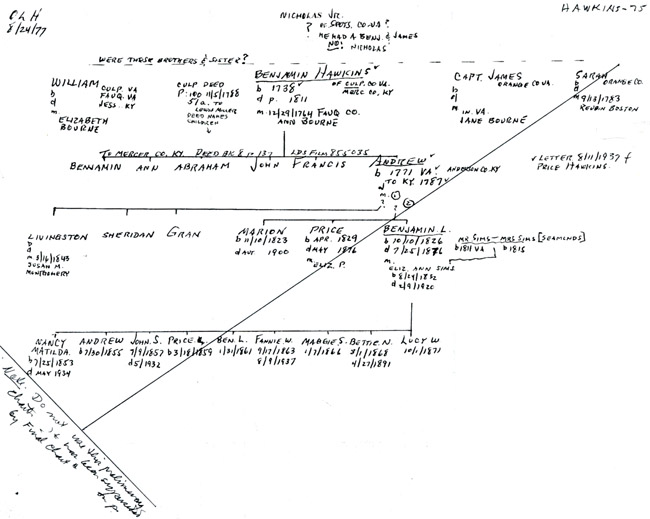 OLH
8/24/77
HAWKINS-75
NICHOLAS JR.
? OF SPOTS. CO. VA?
HE HAD A BENJ. & JAMES
NO! NICHOLAS
WERE THOSE BROTHERS & SISTER?
WILLIAM
b CULP. VA
d FAUQ. VA
JESS. KY
m
ELIZABETH
BOURNE
CULP DEED
P:100 11/5/1788
S/a. TO
LEWIS MILLER
DEED NAMES
CHILDREN
BENJAMIN HAWKINS ✓
b 1738 ✓ OF CULP. CO VA.
d p. 1811 MERC CO, KY
m 12/29/1764 FAUQ CO.
ANN BOURNE
CAPT. JAMES
b ORANGE CO VA.
d
m IN VA.
JANE BOURNE
SARAH
b ORANGE CO.
d
m 9/13/1783
REUBN BOSTON
TO MERCER CO. KY. DEED BK 8 p 137 LDS FILM 855035
BENJAMIN ANN ABRAHAM JOHN FRANCIS
ANDREW ✓
b 1771 VA. ✓ ANDERSON CO. KY
d TO KY 1787 ✓
m. ①
? ②
?
✓ LETTER 8/11/1937 f
PRICE HAWKINS.
LIVINGSTON
b
d
m 3/16/1843
SUSAN M.
MONTGOMERY
SHERIDAN
GRAN
MARION
b 11/10/1823
d AUT 1900
PRICE
b APR. 1829
d MAY 1876
m
ELIZ. P.
BENJAMIN L.
b 10/10/1826
d 7/25/1876
m.
ELIZ. ANN SIMS
b 8/24/1832
d 2/9/1920
MR SIMS — MRS SIMS [SEAMONDS]
b 1811 VA b 1815
NANCY
MATILDA.
b 7/25/1853
d MAY 1934
ANDREW
b 7/30/1855
JOHN. S.
7/9/1857
d 5/1932
PRICE.
b 3/18/1859
BEN. L.
1/31/1861
FANNIE. W.
9/17/1863
8/9/1937
MAGGIE S.
1/7/1866
BETTIE. N.
3/1/1868
4/27/1891
LUCY W
10/1/1871
Note: Do not use this preliminary
chart - it has been superseded
by Final Chart